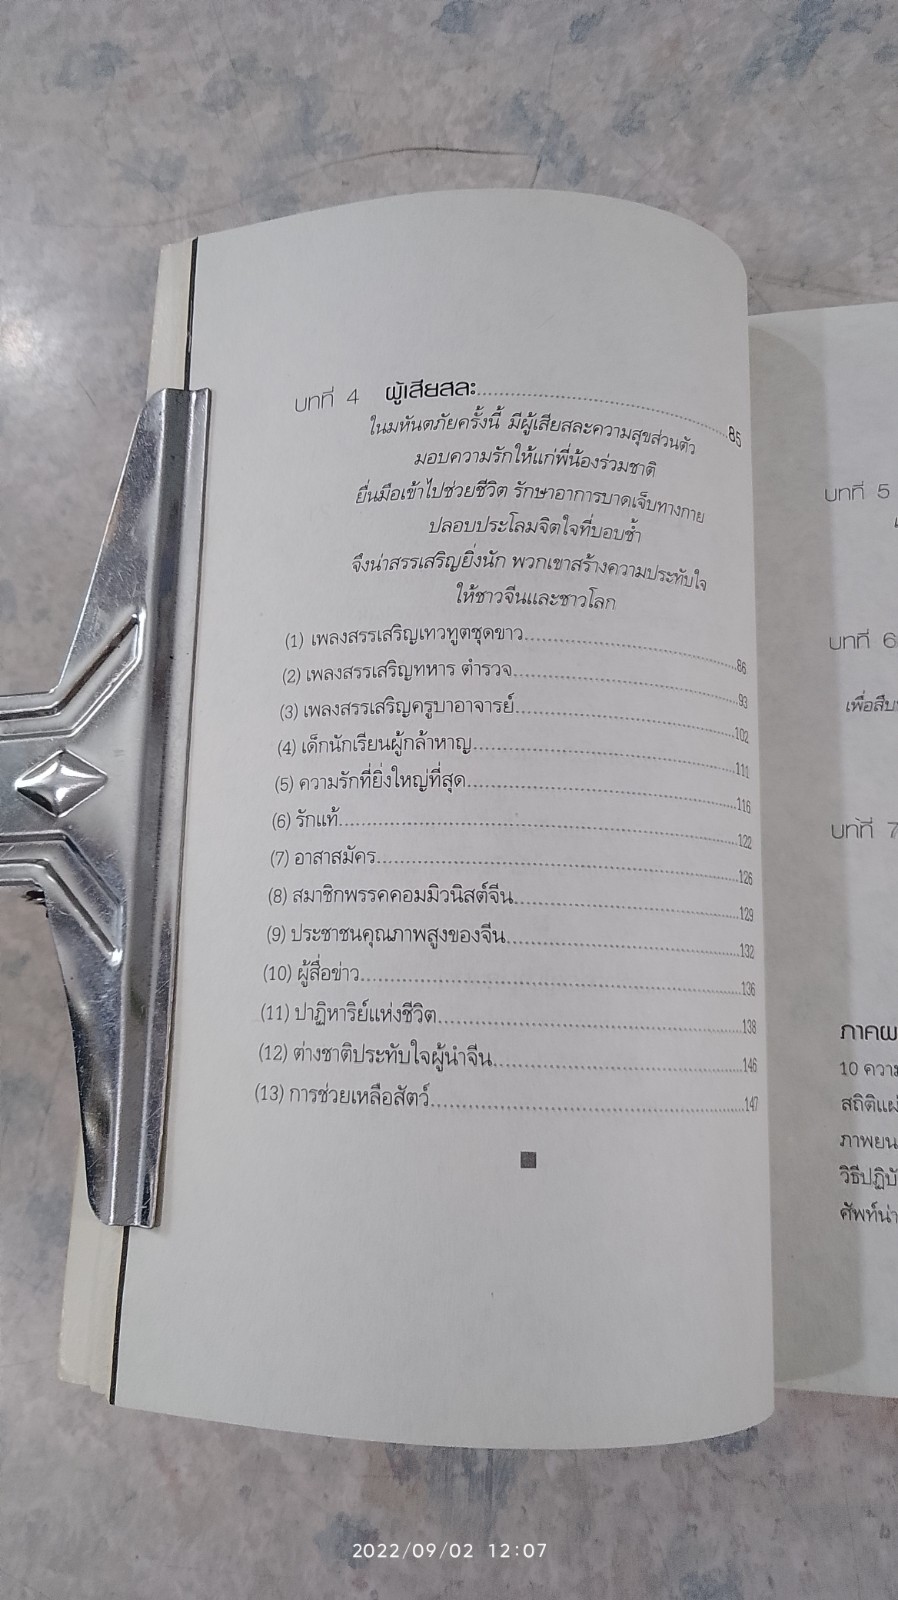 บทที่ 4 ผู้เสียสละ........................................85
ในมหันตภัยครั้งนี้ มีผู้เสียสละความสุขส่วนตัว
มอบความรักให้แก่พี่น้องร่วมชาติ
ยื่นมือเข้าไปช่วยชีวิต รักษาอาการบาดเจ็บทางกาย
ปลอบประโลมจิตใจที่บอบช้ำ
จึงน่าสรรเสริญยิ่งนัก พวกเขาสร้างความประทับใจ
ให้ชาวจีนและชาวโลก
(1) เพลงสรรเสริญเทวทูตชุดขาว........................................86
(2) เพลงสรรเสริญทหาร ตำรวจ........................................93
(3) เพลงสรรเสริญครูบาอาจารย์........................................102
(4) เด็กนักเรียนผู้กล้าหาญ........................................111
(5) ความรักที่ยิ่งใหญ่ที่สุด........................................116
(6) รักแท้........................................122
(7) อาสาสมัคร........................................126
(8) สมาชิกพรรคคอมมิวนิสต์จีน........................................129
(9) ประชาชนคุณภาพสูงของจีน........................................132
(10) ผู้สื่อข่าว........................................136
(11) ปาฏิหาริย์แห่งชีวิต........................................138
(12) ต่างชาติประทับใจผู้นำจีน........................................146
(13) การช่วยเหลือสัตว์........................................147
บทที่ 5
บทที่ 6
เพื่อสืบ
บทที่ 7
ภาคผ
10 ความ
สถิติแผ่
ภาพยน
วิธีปฏิบั
ศัพท์น่า
2022/09/02 12:07